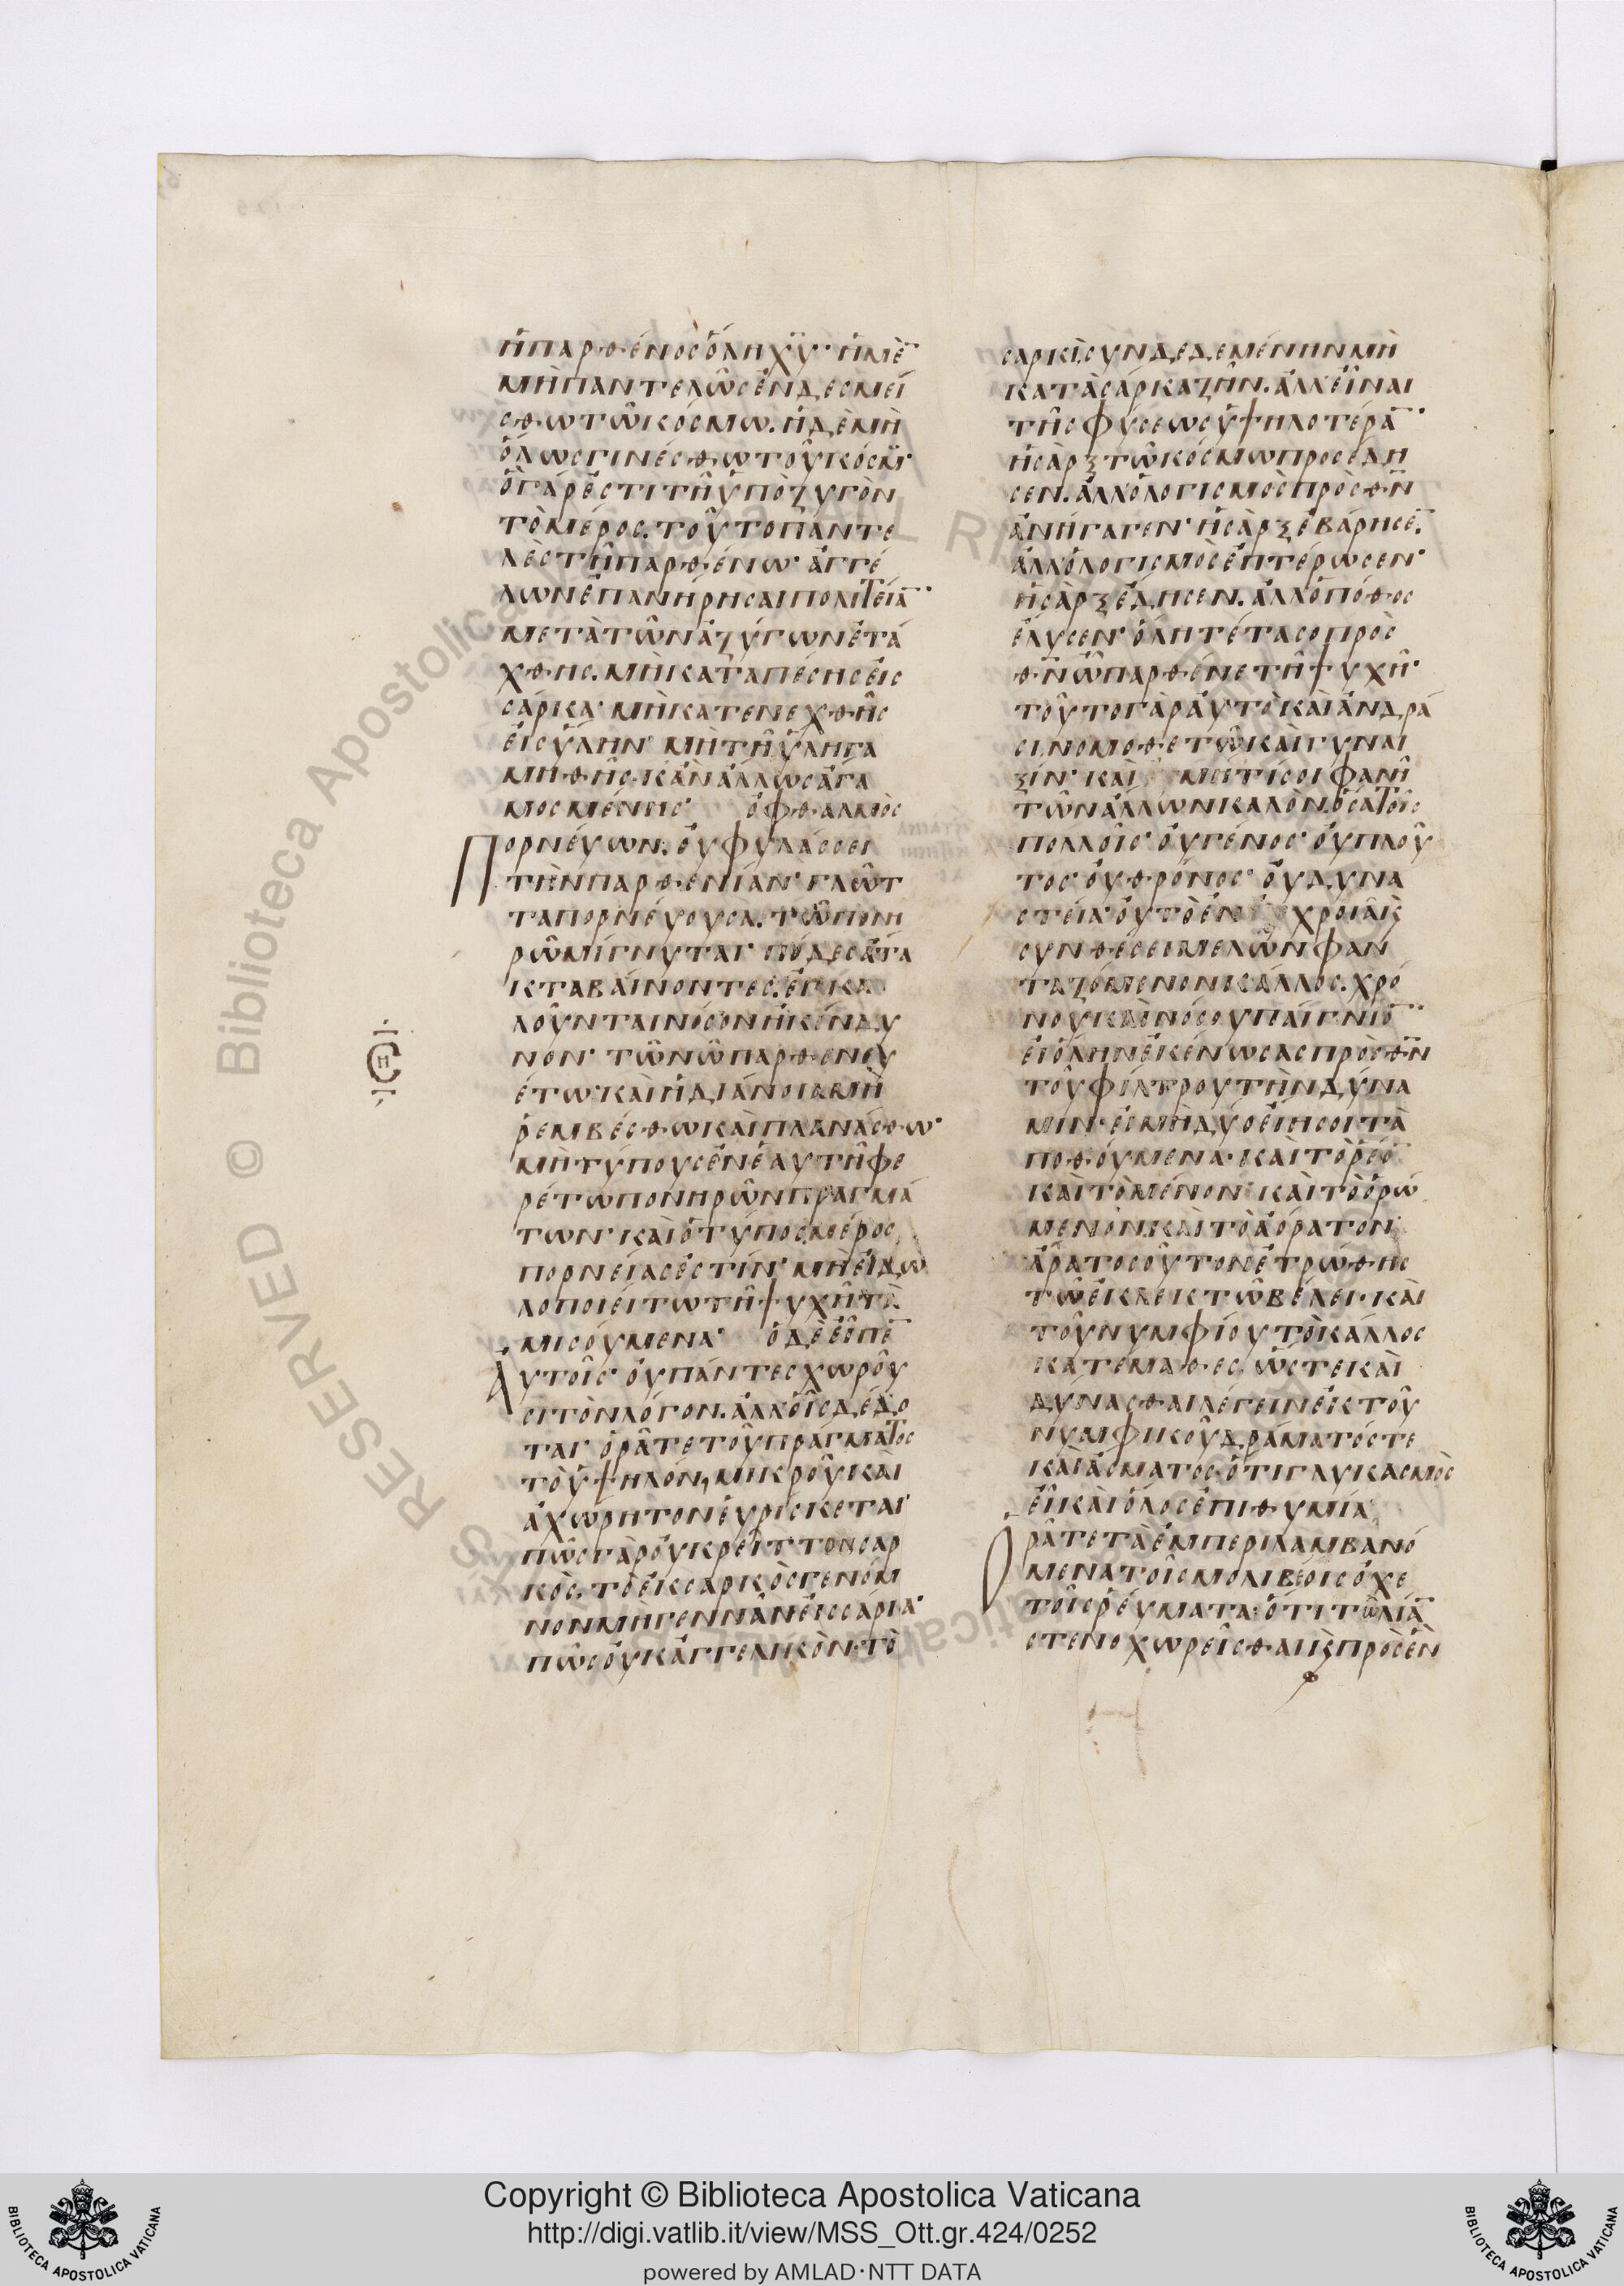 ἡ παρθένος ὅλη χ̅υ̅· ἡ μὲ̅
μὴ παντελῶς ἐνδεσμεί
σθω τῶ κόσμω. ἡ δὲ μὴ
ὅλως γινέσθω τοῦ κόσμ(ου)·
ὃ γάρ ἐστι τῆ ὑπὸ ζυγὸν
τὸ μέρος. τοῦτο παντε
λὲς τῆ παρθένω· ἀγγέ
λων ἐπανήρησαι πολιτεία̅·
μετὰ τῶν ἀζύγων ἐτά
χθης. μὴ καταπέσης εἰς
σάρκα· μὴ κατενεχθῆς
εἰς ὕλην· μὴ τῆ ὕλη γα
μηθῆς· κἂν ἄλλως ἄγα
μος μένεις· ὀφθαλμὸς
πορνεύων. οὐ φυλάσσει
τὴν παρθενίαν· γλῶτ
τα πορνεύουσα. τῶ πονη
ρῶ μίγνυται· πόδες ἄτα
κτα βαίνοντες. ἐγκα
λοῦνται νόσον ἢ κίνδυ
νον· τῶν ὦ παρθενευ
έτω· καὶ ἡ διάνοια μὴ
ῥεμβέσθω καὶ πλανάσθω·
μὴ τύπους ἐν ἑαυτῆ φε
ρέτω πονηρῶν πραγμά
των· καὶ ὁ τύπος μέρος
πορνείας ἐστίν· μὴ εἰδω
λοποιείτω τῆ ψυχῆ τὰ
μισούμενα· ὁ δὲ εἶπε̅
αὐτοῖς· οὐ πάντες χωροῦ
σι τὸν λόγον. ἀλλ' οἷς δέδο
ται· ὁρᾶτε τοῦ πράγματος
τὸ ὑψηλόν, μικροῦ καὶ
ἀχώρητον εὑρίσκεται·
πῶς γὰρ οὐ κρεῖττον σαρ
κὸς. τὸ ἐκ σαρκὸς γενόμ
νον μὴ γεννᾶν εἰς σάρκα·
πῶς οὐκ ἀγγελικὸν· τὸ
σαρκὶ συνδεδεμένην μὴ
κατὰ σάρκα ζῆν. ἀλλ' εἶναι
τῆς φύσεως ὑψηλοτέρα̅·
ἡ σὰρξ τῶ κόσμω προσέδη
σεν. ἀλλ' ὁ λογισμὸς πρὸς θ̅ν̅
ἀνήγαγεν· ἡ σὰρξ ἐβάρησε̅.
ἀλλ' ὁ λογισμὸς ἐπτέρωσεν·
ἡ σὰρξ ἔδησεν. ἀλλ' ὁ πόθος
ἔλυσεν· ὅλη τέτασο πρὸς
θ̅ν̅ ὦ παρθένε τῆ ψυχῆ·
τοῦτο γὰρ αὐτὸ καὶ ἀνδρά
σι νομοθετῶ καὶ γυναι
ξίν· καὶ μή τί σοι φανῆ
τῶν ἄλλων καλὸν. ὅσα τοῖς
πολλοῖς· οὐ γένος· οὐ πλοῦ
τος· οὐ θρόνος· οὐ δυνα
στεία· οὐ τὸ ἐν εὐχροίαις
συνθέσει μελῶν φαν
ταζόμενον κάλλος. χρό
νου καὶ νόσου παίγνιο̅·
εἰ ὅλην ἐκένωσας πρὸς θ̅ν̅
τοῦ φίλτρου τὴν δύνα
μιν· εἰ μὴ δύο εἴη σοι τὰ
ποθούμενα· καὶ τὸ ῥέο̅
καὶ τὸ μένον· καὶ τὸ ὁρώ
μενον. καὶ τὸ ἀόρατον·
ἆρα τοσοῦτον ἐτρώθης
τῶ ἐκλεκτῶ βέλει· καὶ
τοῦ νυμφίου τὸ κάλλος
κατέμαθες. ὥστε καὶ
δύνασθαι λέγειν ἐκ τοῦ
νυμφικοῦ δράματός τε
καὶ ἄσματος. ὅτι γλυκασμὸς
εἶ καὶ ὅλος ἐπιθυμία
ὁρᾶτε τὰ ἐμπεριλαμβανό
μενα τοῖς μολιβέοις ὀχε
τοῖς ῥεύματα· ὅτι τῶ λία̅
στενοχωρεῖσθαι κ(αὶ) πρὸς ἓν
Copyright © Biblioteca Apostolica Vaticana
http://digi.vatlib.it/view/MSS_Ott.gr.424/0252
powered by AMLAD·NTT DATA